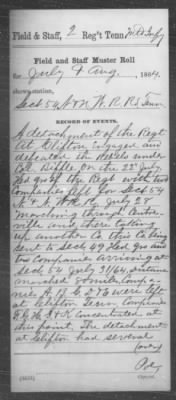 Field & Staff, 2 Reg't Tenn Mtd Infy
Field and Staff Muster Roll
for July & Aug, 1864.
shown station,
Sect 54 N & N W. R. Rd Tenn
RECORD OF EVENTS.
A detachment of the Regt
At Clifton, Engaged and
defeated the Rebels under
Col Biffle on the 22d July
Hd Qrs of the Regt with two
Companies left for Sect 54
N & N. W. R. R. July 28
marching through Centre-
ville and there
another Co this being
sent to Sect 49 Hd Qrs and
two Companies arriving at
Sect 54 July 31/64, distance
marched 80 miles, Compa-
nies were left
at Clifton Tenn Companies
concentrated at
this point. The detachment
at Clifton had several
(over)